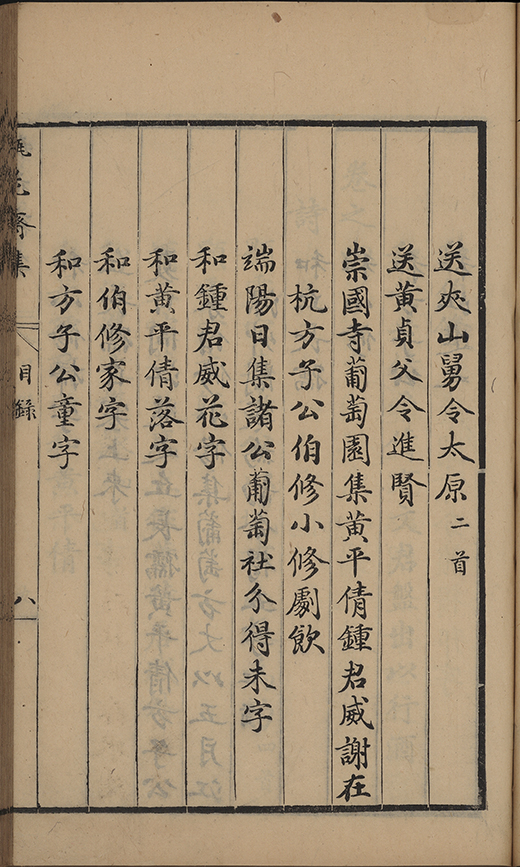 送夾山舅令太原二首
送黃貞父令進賢
崇國寺葡萄園集黃平倩鍾君威謝在
杭方子公伯修小修劇飲
端陽日集諸公葡萄社分得未字
和鍾君威花字
和黃平倩落字
和伯修家字
和方子公童字
花齋集
目錄
八